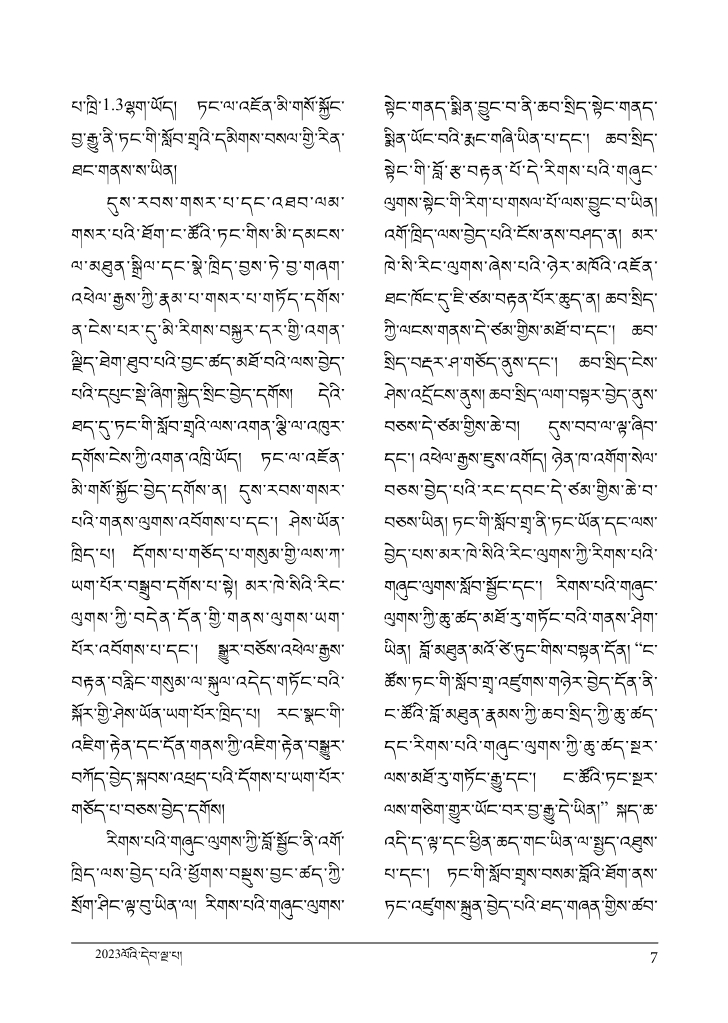 པ་ཁྲི་1.3ལྷག་ཡོད། ཏང་ལ་འཛོན་མི་གསོ་སྐྱོང་
བྱ་རྒྱུ་ནི་ཏང་གི་སློབ་གྲྭའི་དམིགས་བསལ་གྱི་རིན་
ཐང་གནས་ས་ཡིན།
དུས་རབས་གསར་པ་དང་འཐབ་ལམ་
གསར་པའི་ཐོག་ང་ཚོའི་ཏང་གིས་མི་དམངས་
ལ་མཐུན་སྒྲིལ་དང་སྣེ་ཁྲིད་བྱས་ཏེ་བྱ་གཞག་
འཕེལ་རྒྱས་ཀྱི་རྣམ་པ་གསར་པ་གཏོད་དགོས་
ན་ངེས་པར་དུ་མི་རིགས་བསྐྱར་དར་གྱི་འགན་
ལྗིད་ཐེག་ཐུབ་པའི་བྱང་ཚད་མཐོ་བའི་ལས་བྱེད་
པའི་དཔུང་སྡེ་ཞིག་སྐྱེད་སྲིང་བྱེད་དགོས། དེའི་
ཐད་དུ་ཏང་གི་སློབ་གྲྭའི་ལས་འགན་ལྕི་ལ་འཁུར་
དགོས་ངེས་ཀྱི་འགན་འཁྲི་ཡོད། ཏང་ལ་འཛོན་
མི་གསོ་སྐྱོང་བྱེད་དགོས་ན། དུས་རབས་གསར་
པའི་གནས་ལུགས་འབོགས་པ་དང་། ཤེས་ཡོན་
ཁྲིད་པ། དོགས་པ་གཅོད་པ་གསུམ་གྱི་ལས་ཀ་
ཡག་པོར་བསྒྲུབ་དགོས་པ་སྟེ། མར་ཁེ་སིའི་རིང་
ལུགས་ཀྱི་བདེན་དོན་གྱི་གནས་ལུགས་ཡག་
པོར་འབོགས་པ་དང་། སྒྱུར་བཅོས་འཕེལ་རྒྱས་
བརྟན་བརླིང་གསུམ་ལ་སྐུལ་འདེད་གཏོང་བའི་
སྐོར་གྱི་ཤེས་ཡོན་ཡག་པོར་ཁྲིད་པ། རང་སྣང་གི་
འཇིག་རྟེན་དང་དོན་གནས་ཀྱི་འཇིག་རྟེན་བསྒྱུར་
བཀོད་བྱེད་སྐབས་འཕྲད་པའི་དོགས་པ་ཡག་པོར་
གཅོད་པ་བཅས་བྱེད་དགོས།
རིགས་པའི་གཞུང་ལུགས་ཀྱི་བློ་སྦྱོང་ནི་འགོ་
ཁྲིད་ལས་བྱེད་པའི་ཕྱོགས་བསྡུས་བྱང་ཚད་ཀྱི་
སྲོག་ཤིང་ལྟ་བུ་ཡིན་ལ། རིགས་པའི་གཞུང་ལུགས་
སྟེང་གནད་སྨིན་བྱུང་བ་ནི་ཆབ་སྲིད་སྟེང་གནད་
སྨིན་ཡོང་བའི་རྨང་གཞི་ཡིན་པ་དང་། ཆབ་སྲིད་
སྟེང་གི་བློ་རྩ་བརྟན་པོ་དེ་རིགས་པའི་གཞུང་
ལུགས་སྟེང་གི་རིག་པ་གསལ་པོ་ལས་བྱུང་བ་ཡིན།
འགོ་ཁྲིད་ལས་བྱེད་པའི་ངོས་ནས་བཤད་ན། མར་
ཁེ་སི་རིང་ལུགས་ཞེས་པའི་ཉེར་མཁོའི་འཛོན་
ཐང་ཁོང་དུ་ཇི་ཙམ་བརྟན་པོར་ཆུད་ན། ཆབ་སྲིད་
ཀྱི་ལངས་གནས་དེ་ཙམ་གྱིས་མཐོ་བ་དང་། ཆབ་
སྲིད་བརྡར་ཤ་གཅོད་ནུས་དང་། ཆབ་སྲིད་ངེས་
ཤེས་འདྲོངས་ནུས། ཆབ་སྲིད་ལག་བསྟར་བྱེད་ནུས་
བཅས་དེ་ཙམ་གྱིས་ཆེ་བ། དུས་བབ་ལ་ལྟ་ཞིབ་
དང་། འཕེལ་རྒྱས་ཇུས་འགོད། ཉེན་ཁ་འགོག་སེལ་
བཅས་བྱེད་པའི་རང་དབང་དེ་ཙམ་གྱིས་ཆེ་བ་
བཅས་ཡིན། ཏང་གི་སློབ་གྲྭ་ནི་ཏང་ཡོན་དང་ལས་
བྱེད་པས་མར་ཁེ་སིའི་རིང་ལུགས་ཀྱི་རིགས་པའི་
གཞུང་ལུགས་སློབ་སྦྱོང་དང་། རིགས་པའི་གཞུང་
ལུགས་ཀྱི་ཆུ་ཚད་མཐོ་རུ་གཏོང་བའི་གནས་ཤིག་
ཡིན། བློ་མཐུན་མའོ་ཙེ་ཏུང་གིས་བསྟན་དོན། “ང་
ཚོས་ཏང་གི་སློབ་གྲྭ་འཛུགས་གཉེར་བྱེད་དོན་ནི་
ང་ཚོའི་བློ་མཐུན་རྣམས་ཀྱི་ཆབ་སྲིད་ཀྱི་ཆུ་ཚད་
དང་རིགས་པའི་གཞུང་ལུགས་ཀྱི་ཆུ་ཚད་སྔར་
ལས་མཐོ་རུ་གཏོང་རྒྱུ་དང་། ང་ཚོའི་ཏང་སྔར་
ལས་གཅིག་གྱུར་ཡོང་བར་བྱ་རྒྱུ་དེ་ཡིན།” སྐད་ཆ་
འདི་ད་ལྟ་དང་ཕྱིན་ཆད་གང་ཡིན་ལ་སྤྱད་འཐུས་
པ་དང་། ཏང་གི་སློབ་གྲྭས་བསམ་བློའི་ཐོག་ནས་
ཏང་འཛུགས་སྐྲུན་བྱེད་པའི་ཐད་གཞན་གྱིས་ཚབ་
2023ལོའི་དེབ་ལྔ་པ།
7